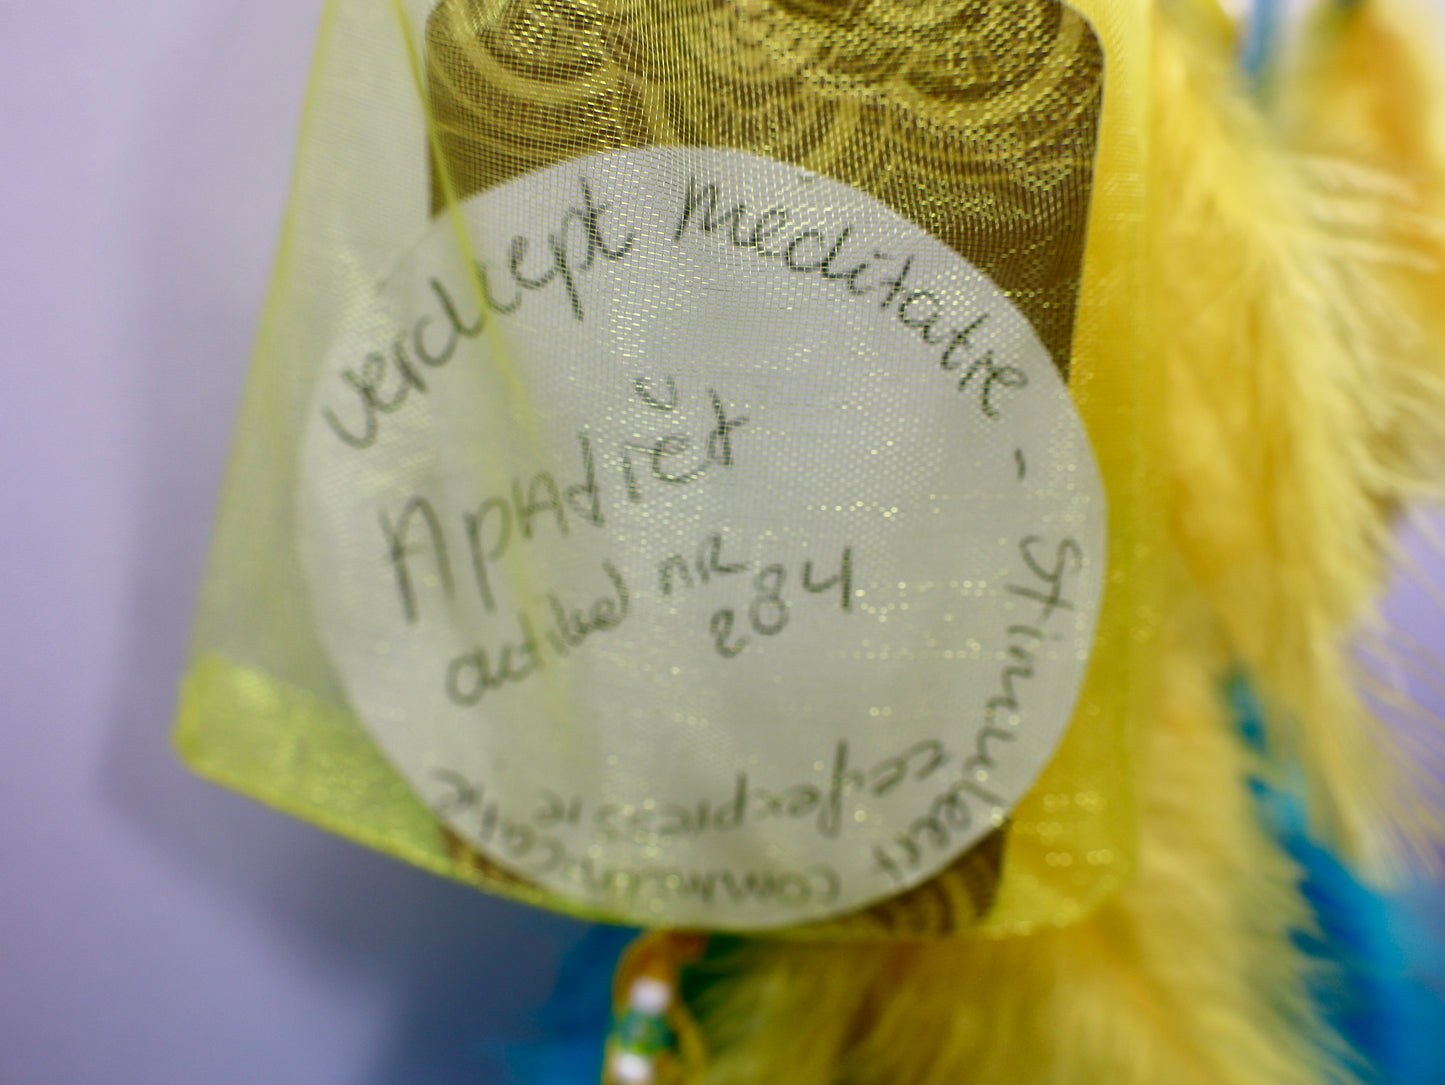 verdiept meditatie - Stimuleert communicatie
zelfexpressie
Apatiet
artikel nr
284